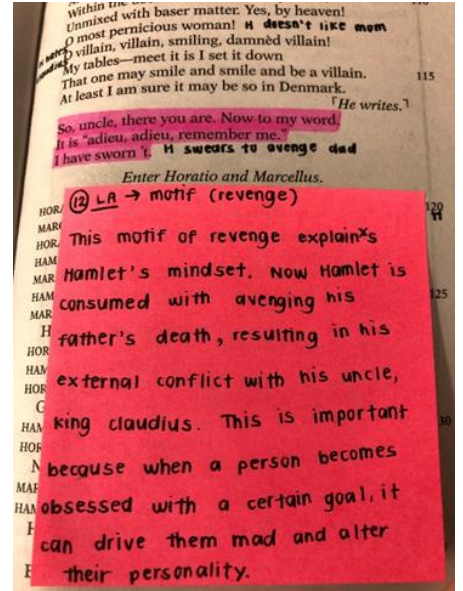 Within the
Unmixed with baser matter. Yes, by heaven!
O most pernicious woman! H doesn't like mom
O villain, villain, smiling, damnèd villain!
H hates claudius
My tables—meet it is I set it down
That one may smile and smile and be a villain. 115
At least I am sure it may be so in Denmark.
⌜He writes.⌝
So, uncle, there you are. Now to my word.
It is "adieu, adieu, remember me."
I have sworn 't. H swears to avenge dad
Enter Horatio and Marcellus.
HOR
MAR
HOR
HAM
MAR
HAM
MAR
H
HOR
HAM
HOR
HAM
HOR
MAR
HAM
120
H
125
30
⑫ LA → motif (revenge)
This motif of revenge explains
Hamlet's mindset. Now Hamlet is
consumed with avenging his
father's death, resulting in his
external conflict with his uncle,
king claudius. This is important
because when a person becomes
obsessed with a certain goal, it
can drive them mad and alter
their personality.